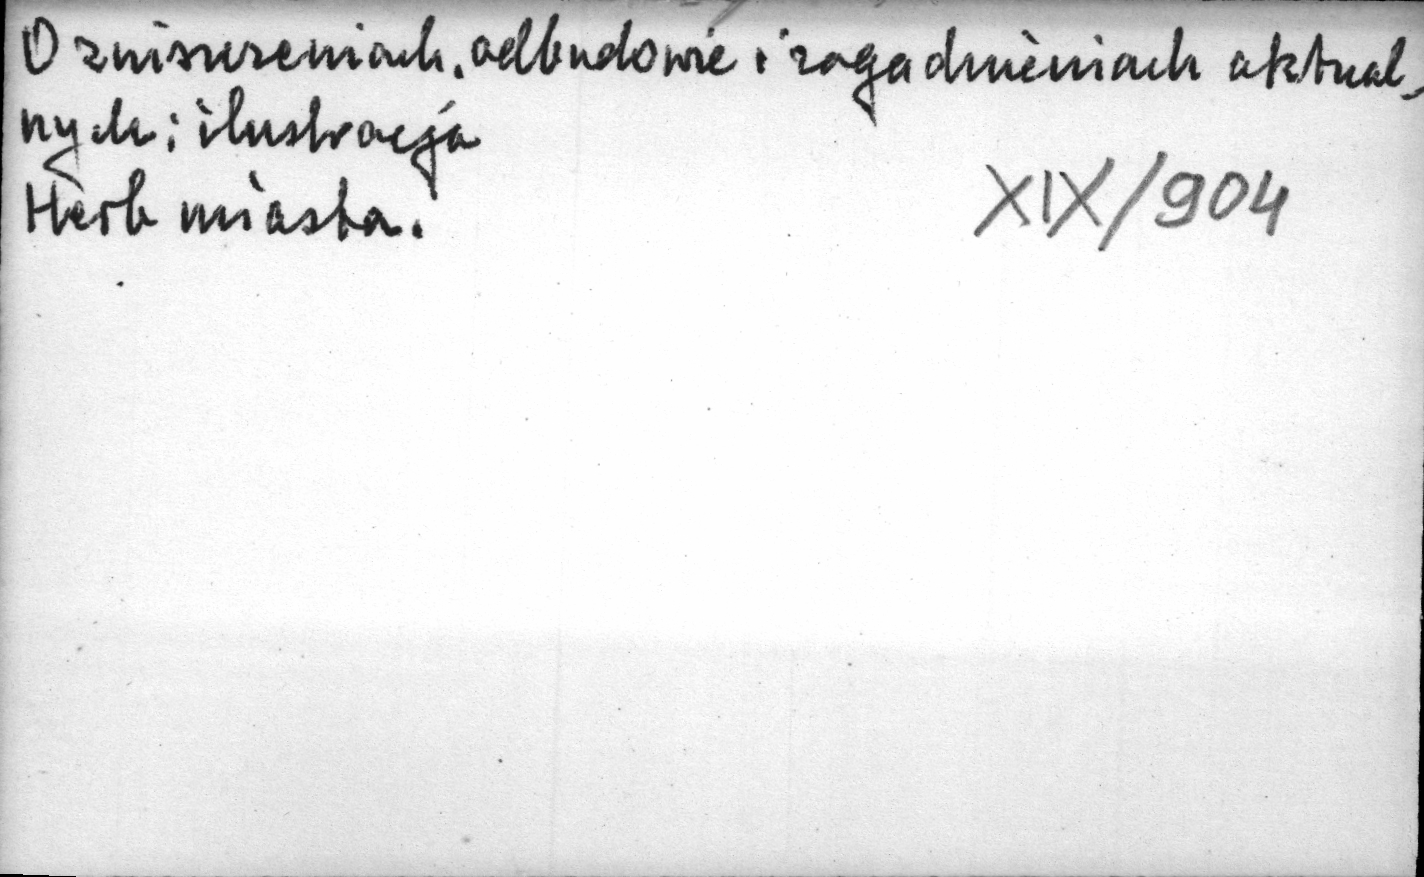 O zniszczeniach, odbudowie i zagadnieniach aktual-
nych; ilustracja
Herb miasta.
XIX/904